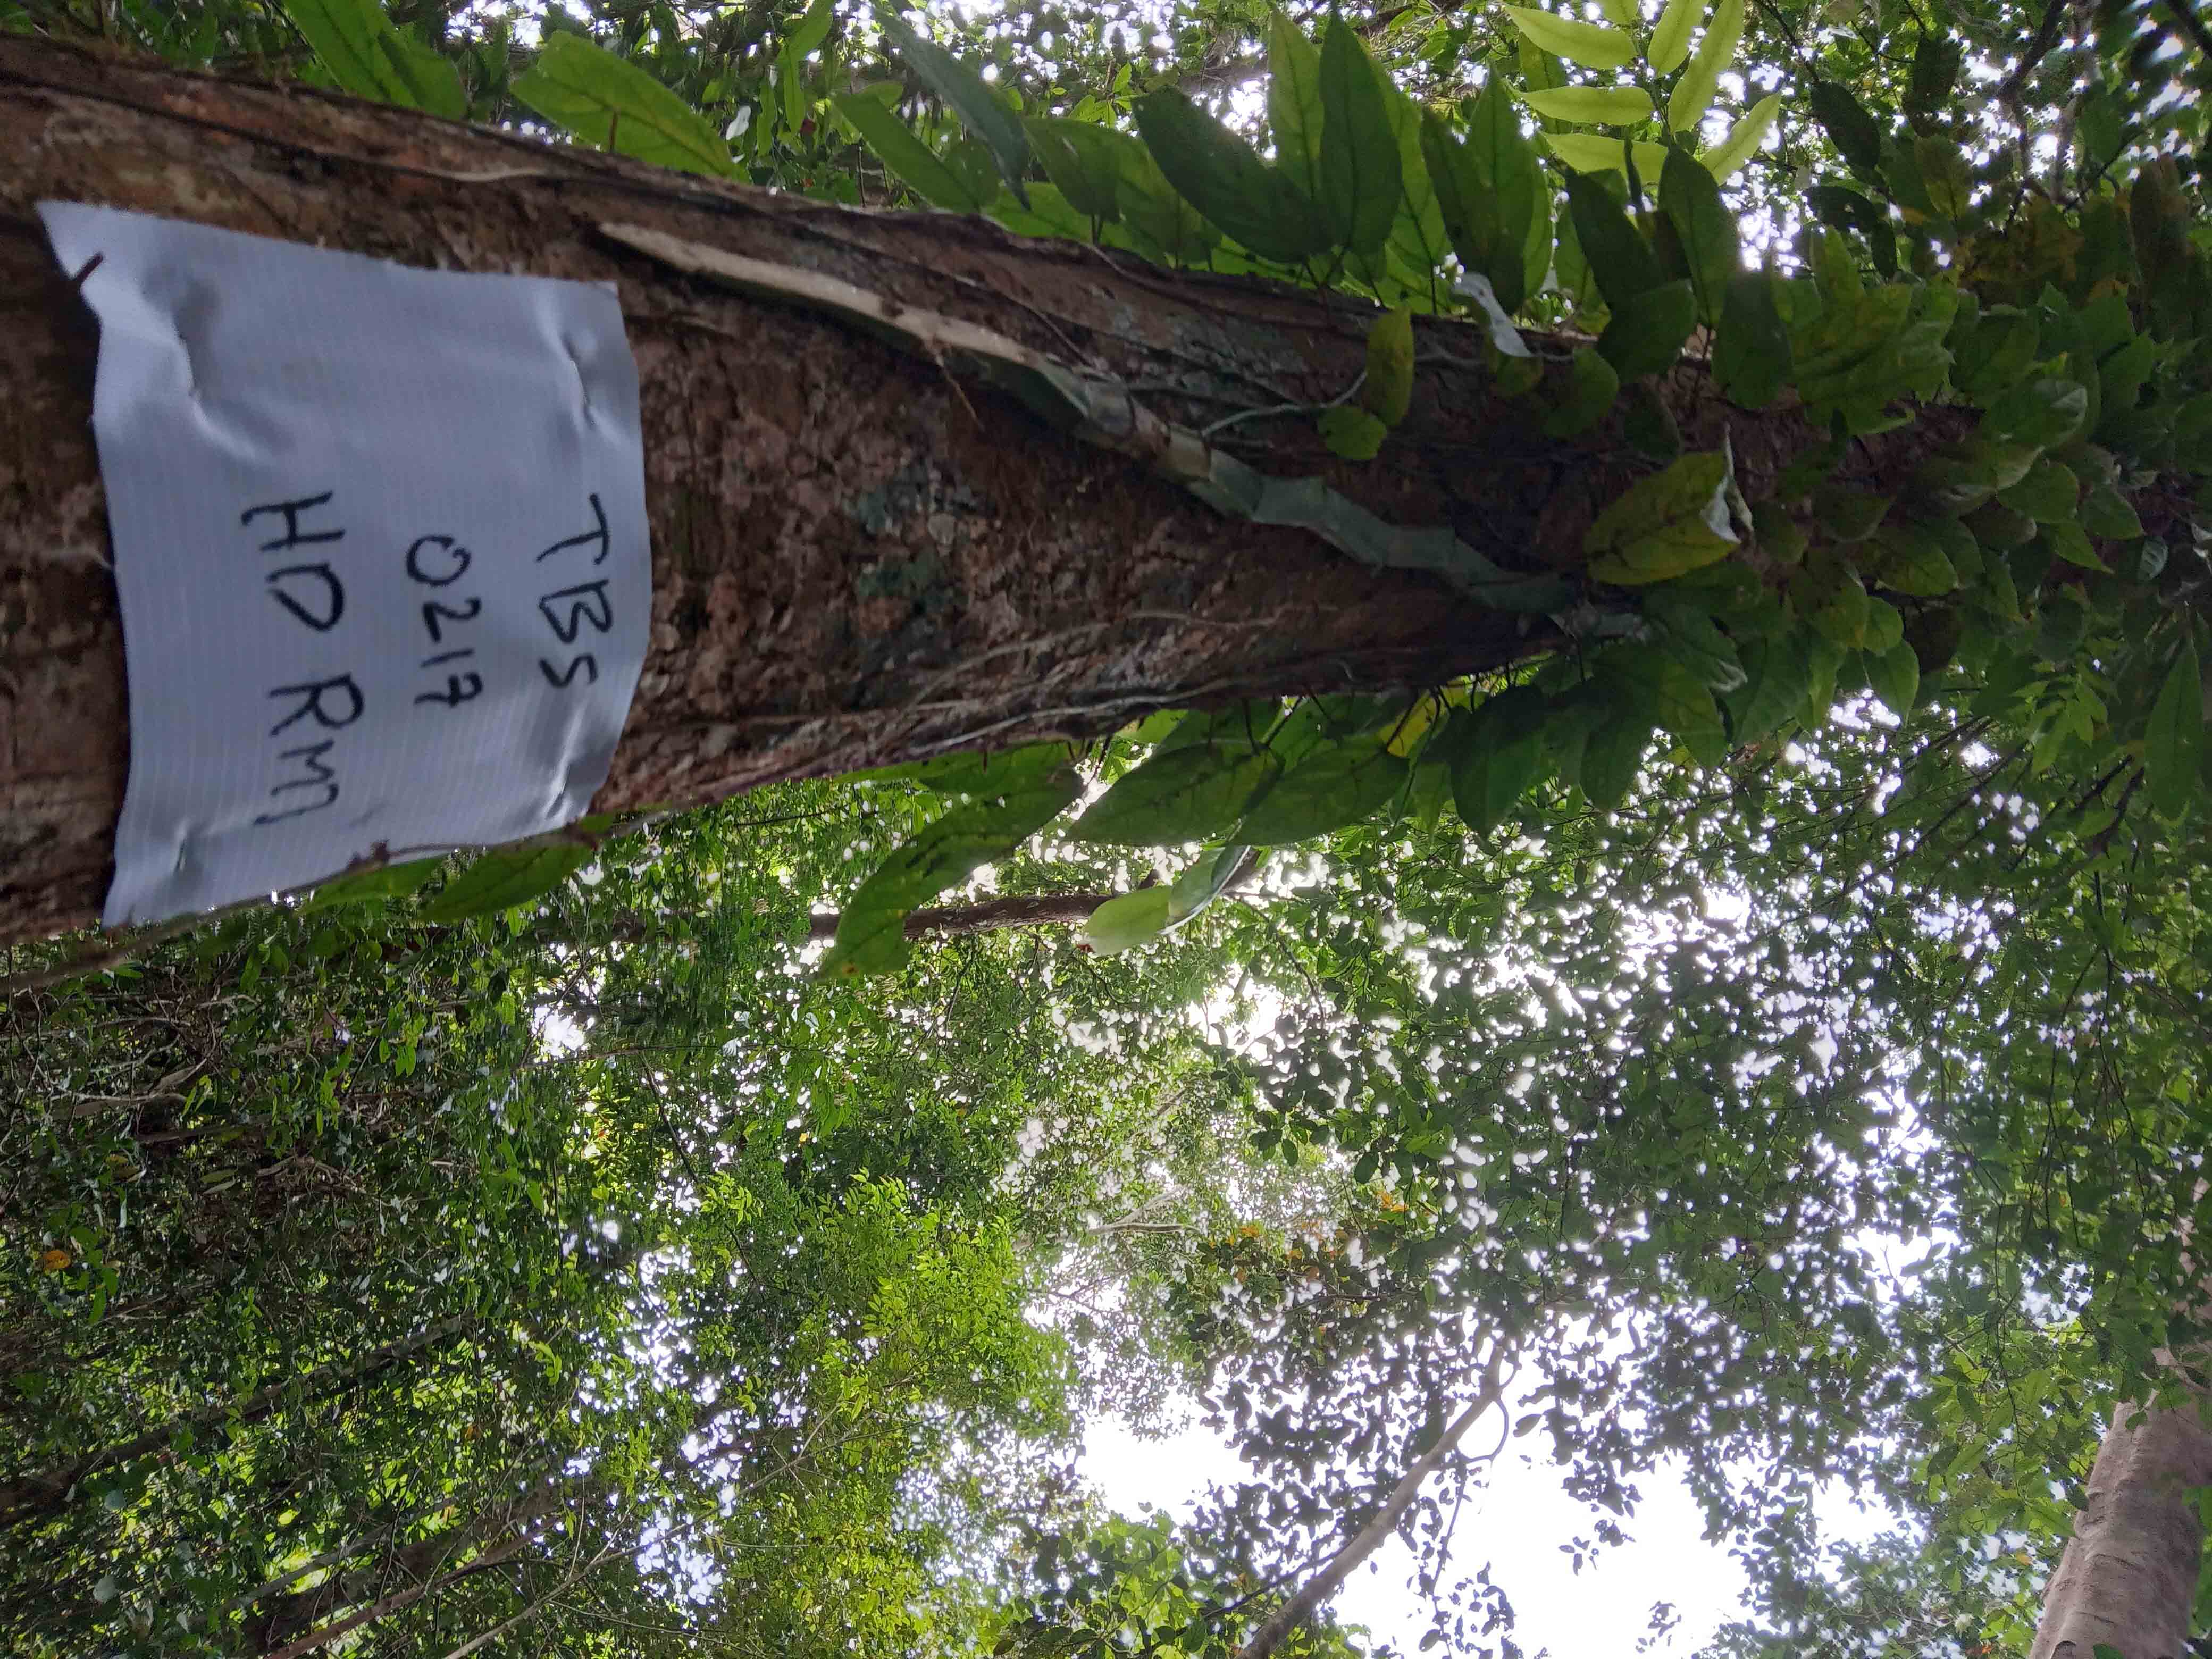 TBS
0217
HD RM1